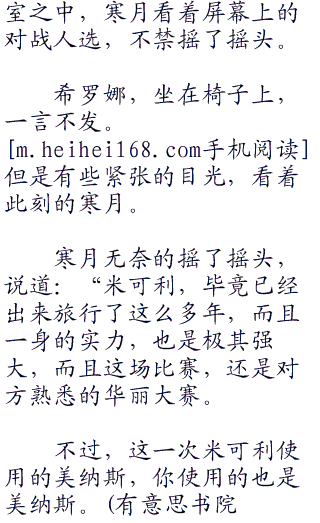 室之中，寒月看着屏幕上的
对战人选，不禁摇了摇头。
希罗娜，坐在椅子上，
一言不发。
[m.heihei168.com手机阅读]
但是有些紧张的目光，看着
此刻的寒月。
寒月无奈的摇了摇头，
说道：“米可利，毕竟已经
出来旅行了这么多年，而且
一身的实力，也是极其强
大，而且这场比赛，还是对
方熟悉的华丽大赛。
不过，这一次米可利使
用的美纳斯，你使用的也是
美纳斯。(有意思书院